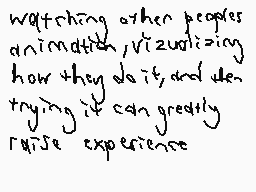 watching other peoples
animation, vizualizing
how they do it, and then
trying it can greatly
raise experience